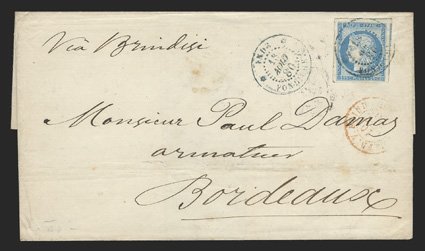 Via Brindisi
INDE
PON
Monsieur Paul Damas
armateur
Bordeaux